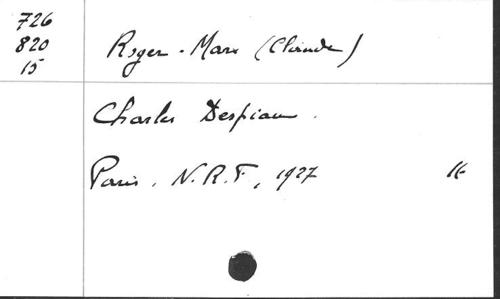 726
820
15
Roger-Marx (Claude)
Charles Despiau.
Paris, N.R.F, 1927 16